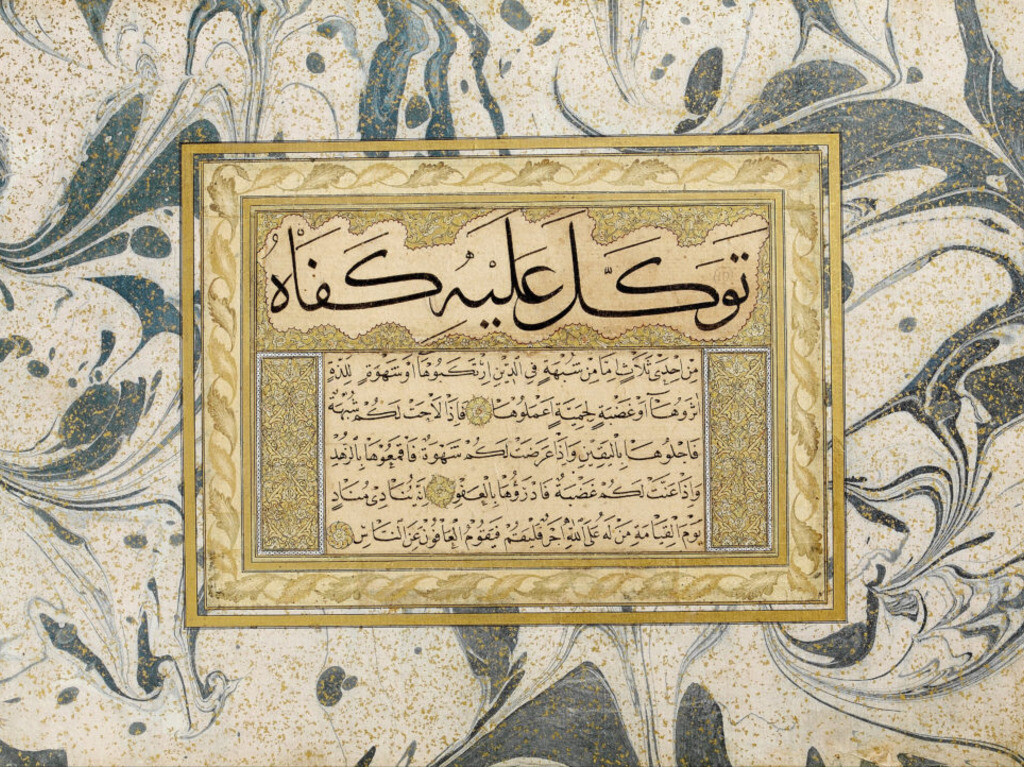 تَوَكَّلَ عَلَيْهِ كَفَاهُ
مِنْ اِحْدٰى ثَلَاثٍ اِمَّا مِنْ شُبْهَةٍ فِي الدِّيْنِ ارْتَكَبُوهَا اَوْ شَهْوَةٍ لِلَذَّةٍ
اٰثَرُوهَا اَوْ غَضْبَةٍ لِحَمِيَّةٍ اَعْمَلُوهَا فَاِذَا لَاحَتْ لَكُمْ شُبْهَةٌ
فَاجْلُوهَا بِالْيَقِيْنِ وَاِذَا عَرَضَتْ لَكُمْ شَهْوَةٌ فَاقْمَعُوهَا بِالزُّهْدِ
وَاِذَا عَنَّتْ لَكُمْ غَضْبَةٌ فَادْرَؤُهَا بِالْعَفْوِ يُنَادِى مُنَادٍ
يَوْمَ الْقِيَامَةِ مَنْ لَهُ عَلَى اللّٰهِ اَجْرٌ فَلْيَقُمْ فَيَقُوْمُ الْعَافُوْنَ عَنِ النَّاسِ